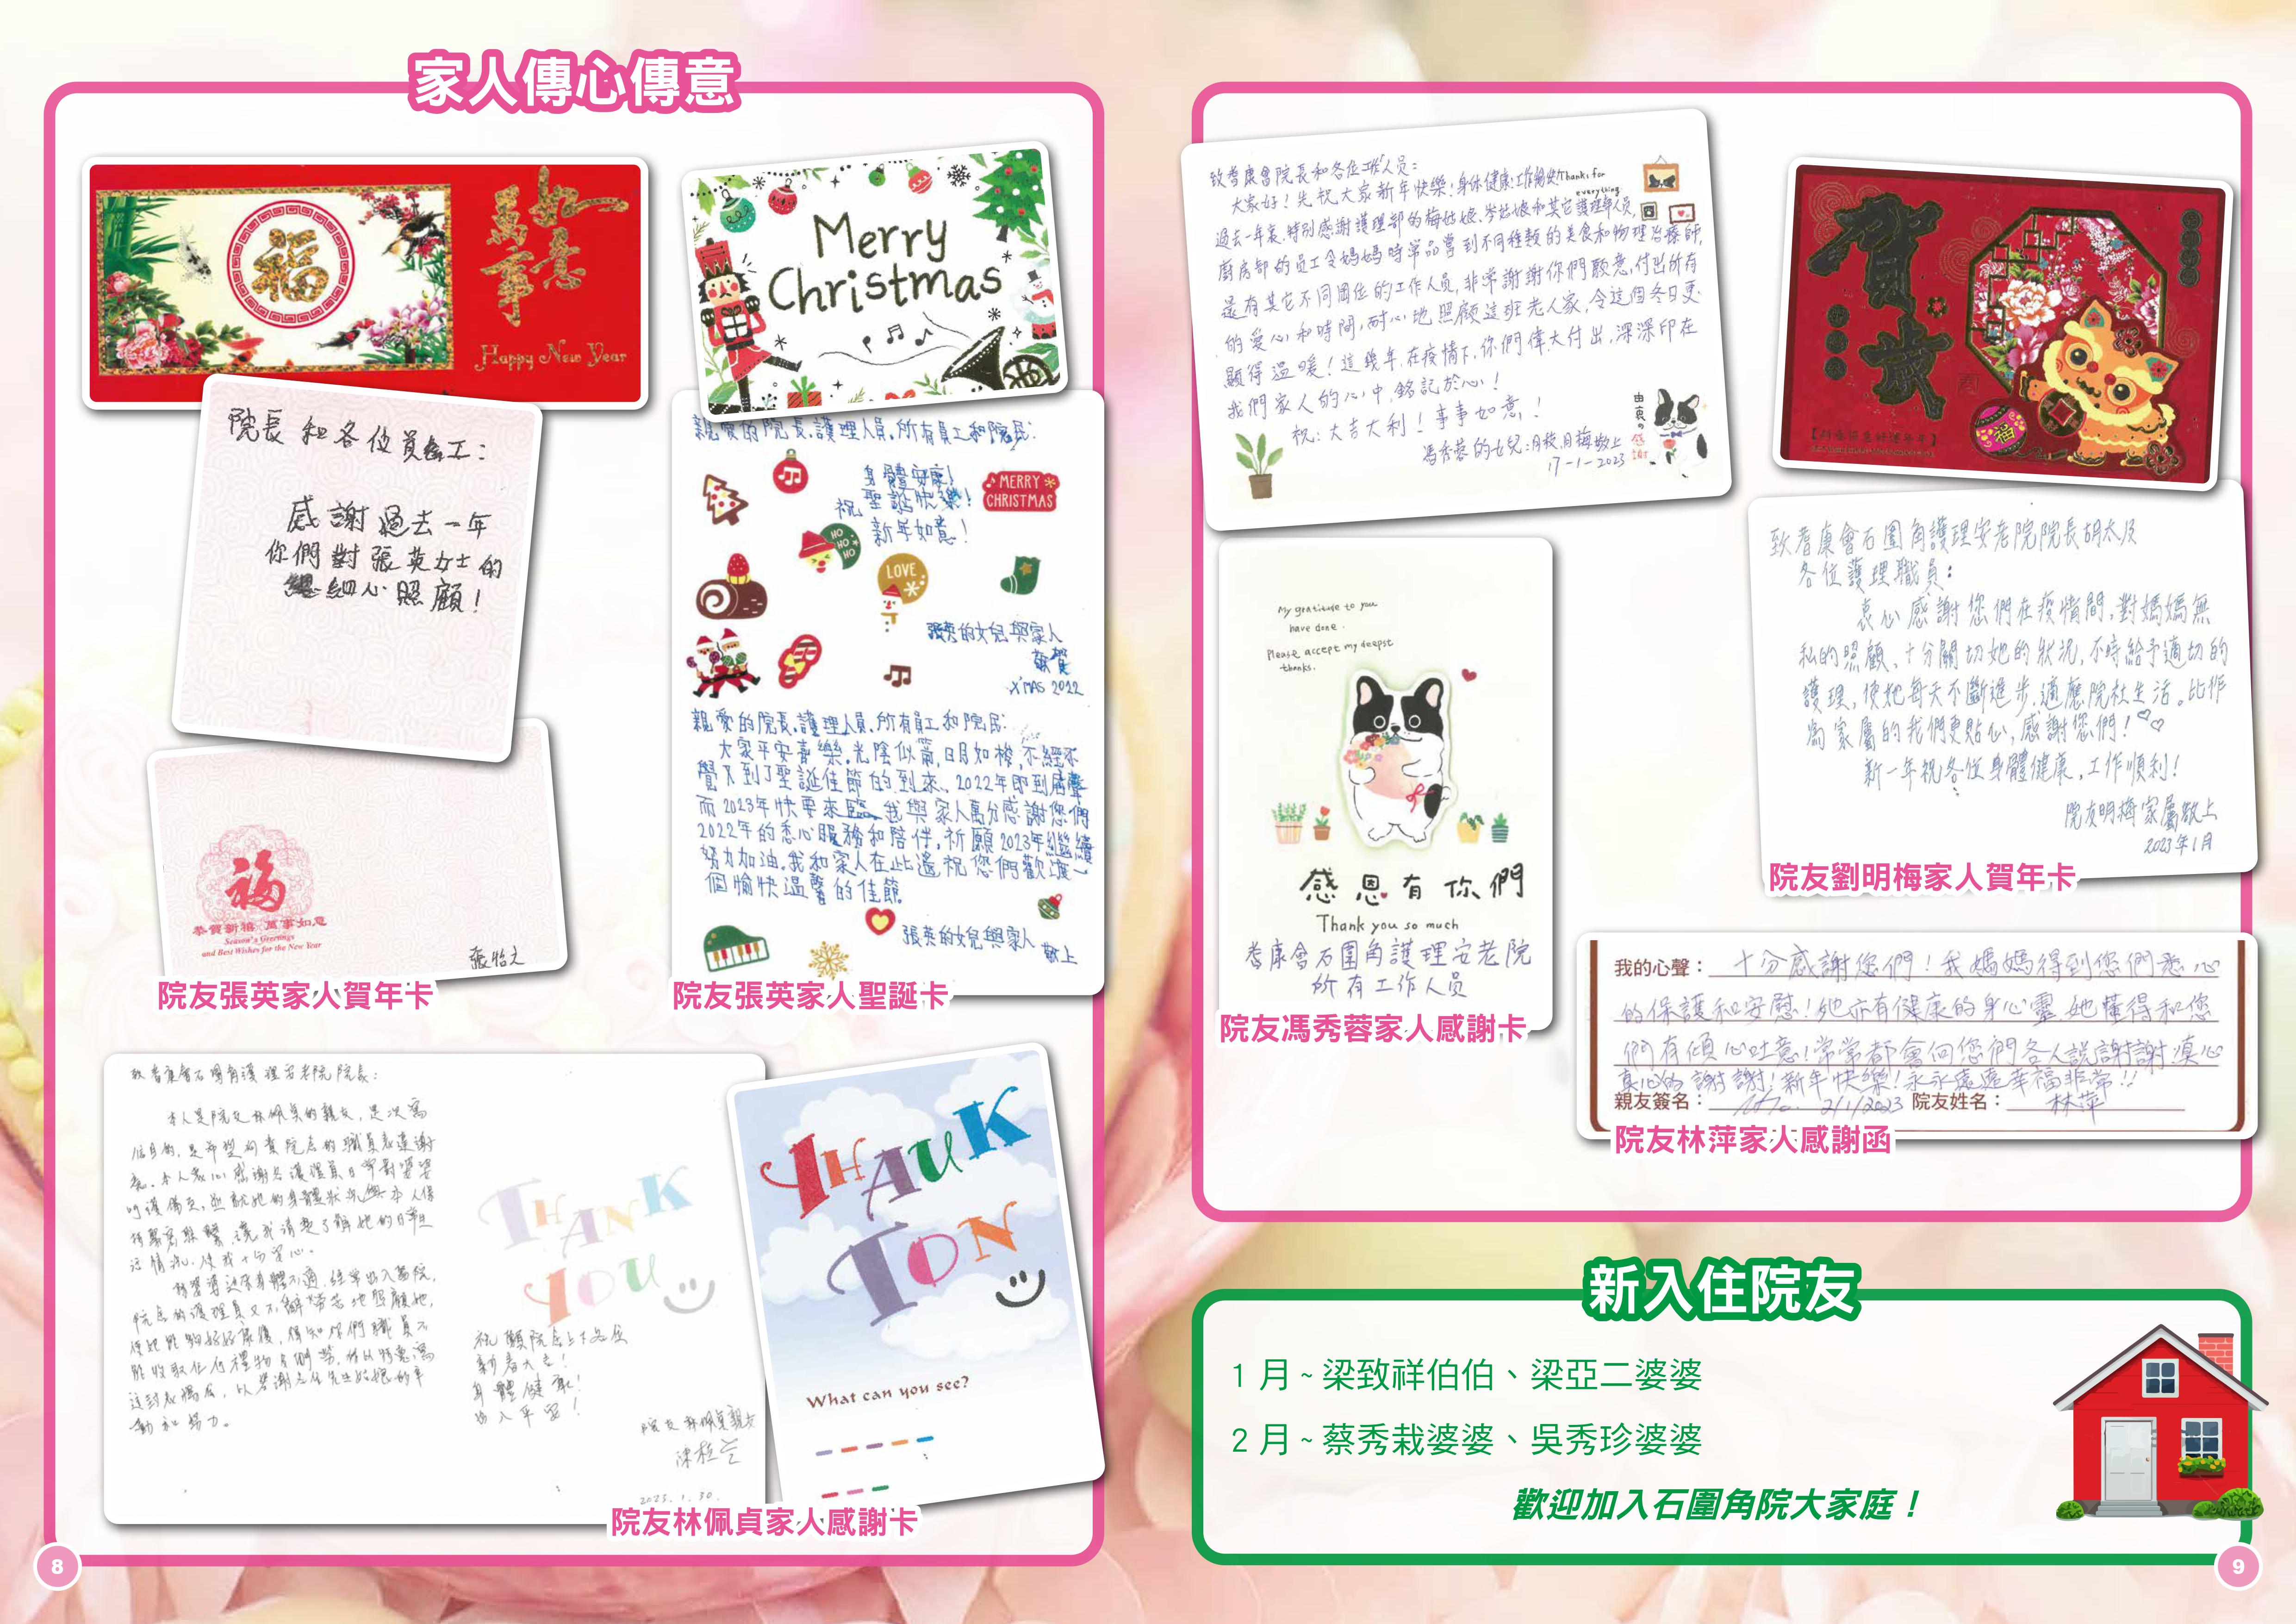 家人傳心傳意
福
萬事如意
Happy New Year
院長和各位員工：
感謝過去一年
你們對張英女士的
細心照顧！
福
恭賀新禧 萬事如意
Season's Greetings
and Best Wishes for the New Year
張怡之
院友張英家人賀年卡
Merry
Christmas
親愛的院長.護理人員.所有員工和院民：
身體安康！
祝 聖誕快樂！
新年如意！
MERRY
CHRISTMAS
HO
HO HO
LOVE
張英的女兒與家人
敬賀
X'MAS 2022
親愛的院長.護理人員.所有員工和院民：
大家平安喜樂.光陰似箭,日月如梭,不經不
覺又到了聖誕佳節的到來、2022年即到尾聲
而2023年快要來臨、我與家人萬分感謝您們
2022年的悉心服務和陪伴,祈願2023年繼續
努力加油.我和家人在此遙祝您們歡渡一
個愉快溫馨的佳節。
張英的女兒與家人 敬上
院友張英家人聖誕卡
致耆康會石圍角護理安老院院長：
本人是院友林佩貞的親友，是次寫
信目的，是希望向貴院志的職員表達謝
意。本人衷心感謝各護理員日常對婆婆
呵護備至，
活情況，使我十分安心。
院友林佩貞親友
2023.1.30
THANK
YOU
祝願院
新春大吉！
身體健康！
出入平安！
THANK
YOU
What can you see?
院友林佩貞家人感謝卡
8
致耆康會院長和各位工作人员：
大家好！先祝大家新年快樂！身体健康！工作愉快！
Thanks for
everything
過去一年裏,特別感謝護理部的梅姑娘、岑姑娘和其它護理部人员,
廚房部的员工令媽媽時常品嘗到不同種類的美食和物理治療師,
還有其它不同崗位的工作人员,非常謝謝你們願意,付出所有
的愛心和時間,耐心地照顧這班老人家,令這個冬日更
顯得溫暖！這幾年,在疫情下,你們偉大付出,深深印在
我們家人的心中,銘記於心！
祝：大吉大利！事事如意！
馮秀蓉的女兒：月枝.月梅敬上
17-1-2023
由衷の感謝
My gratitude to you
have done .
Please accept my deepest
thanks.
感恩有你們
Thank you so much
耆康會石圍角護理安老院
所有工作人员
院友馮秀蓉家人感謝卡
賀歲
福
致耆康會石圍角護理安老院院長胡太及
各位護理職員：
衷心感謝您們在疫情間,對媽媽無
私的照顧、十分關切她的狀況,不時給予適切的
護理,使她每天不斷進步,適應院社生活。比作
為家屬的我們更貼心,感謝您們！
新一年祝各位身體健康,工作順利！
院友明梅家屬敬上
2023年1月
院友劉明梅家人賀年卡
我的心聲：十分感謝您們！我媽媽得到您們悉心
的保護和安慰！她亦有健康的身心靈 她懂得和您
們有傾心吐意！常常都會向您們各人說謝謝 真心
真心的謝謝！新年快樂！永永遠遠幸福非常!!
親友簽名： 2/1/2023 院友姓名：林萍
院友林萍家人感謝函
新入住院友
1 月 ~ 梁致祥伯伯、梁亞二婆婆
2 月 ~ 蔡秀栽婆婆、吳秀珍婆婆
歡迎加入石圍角院大家庭！
9